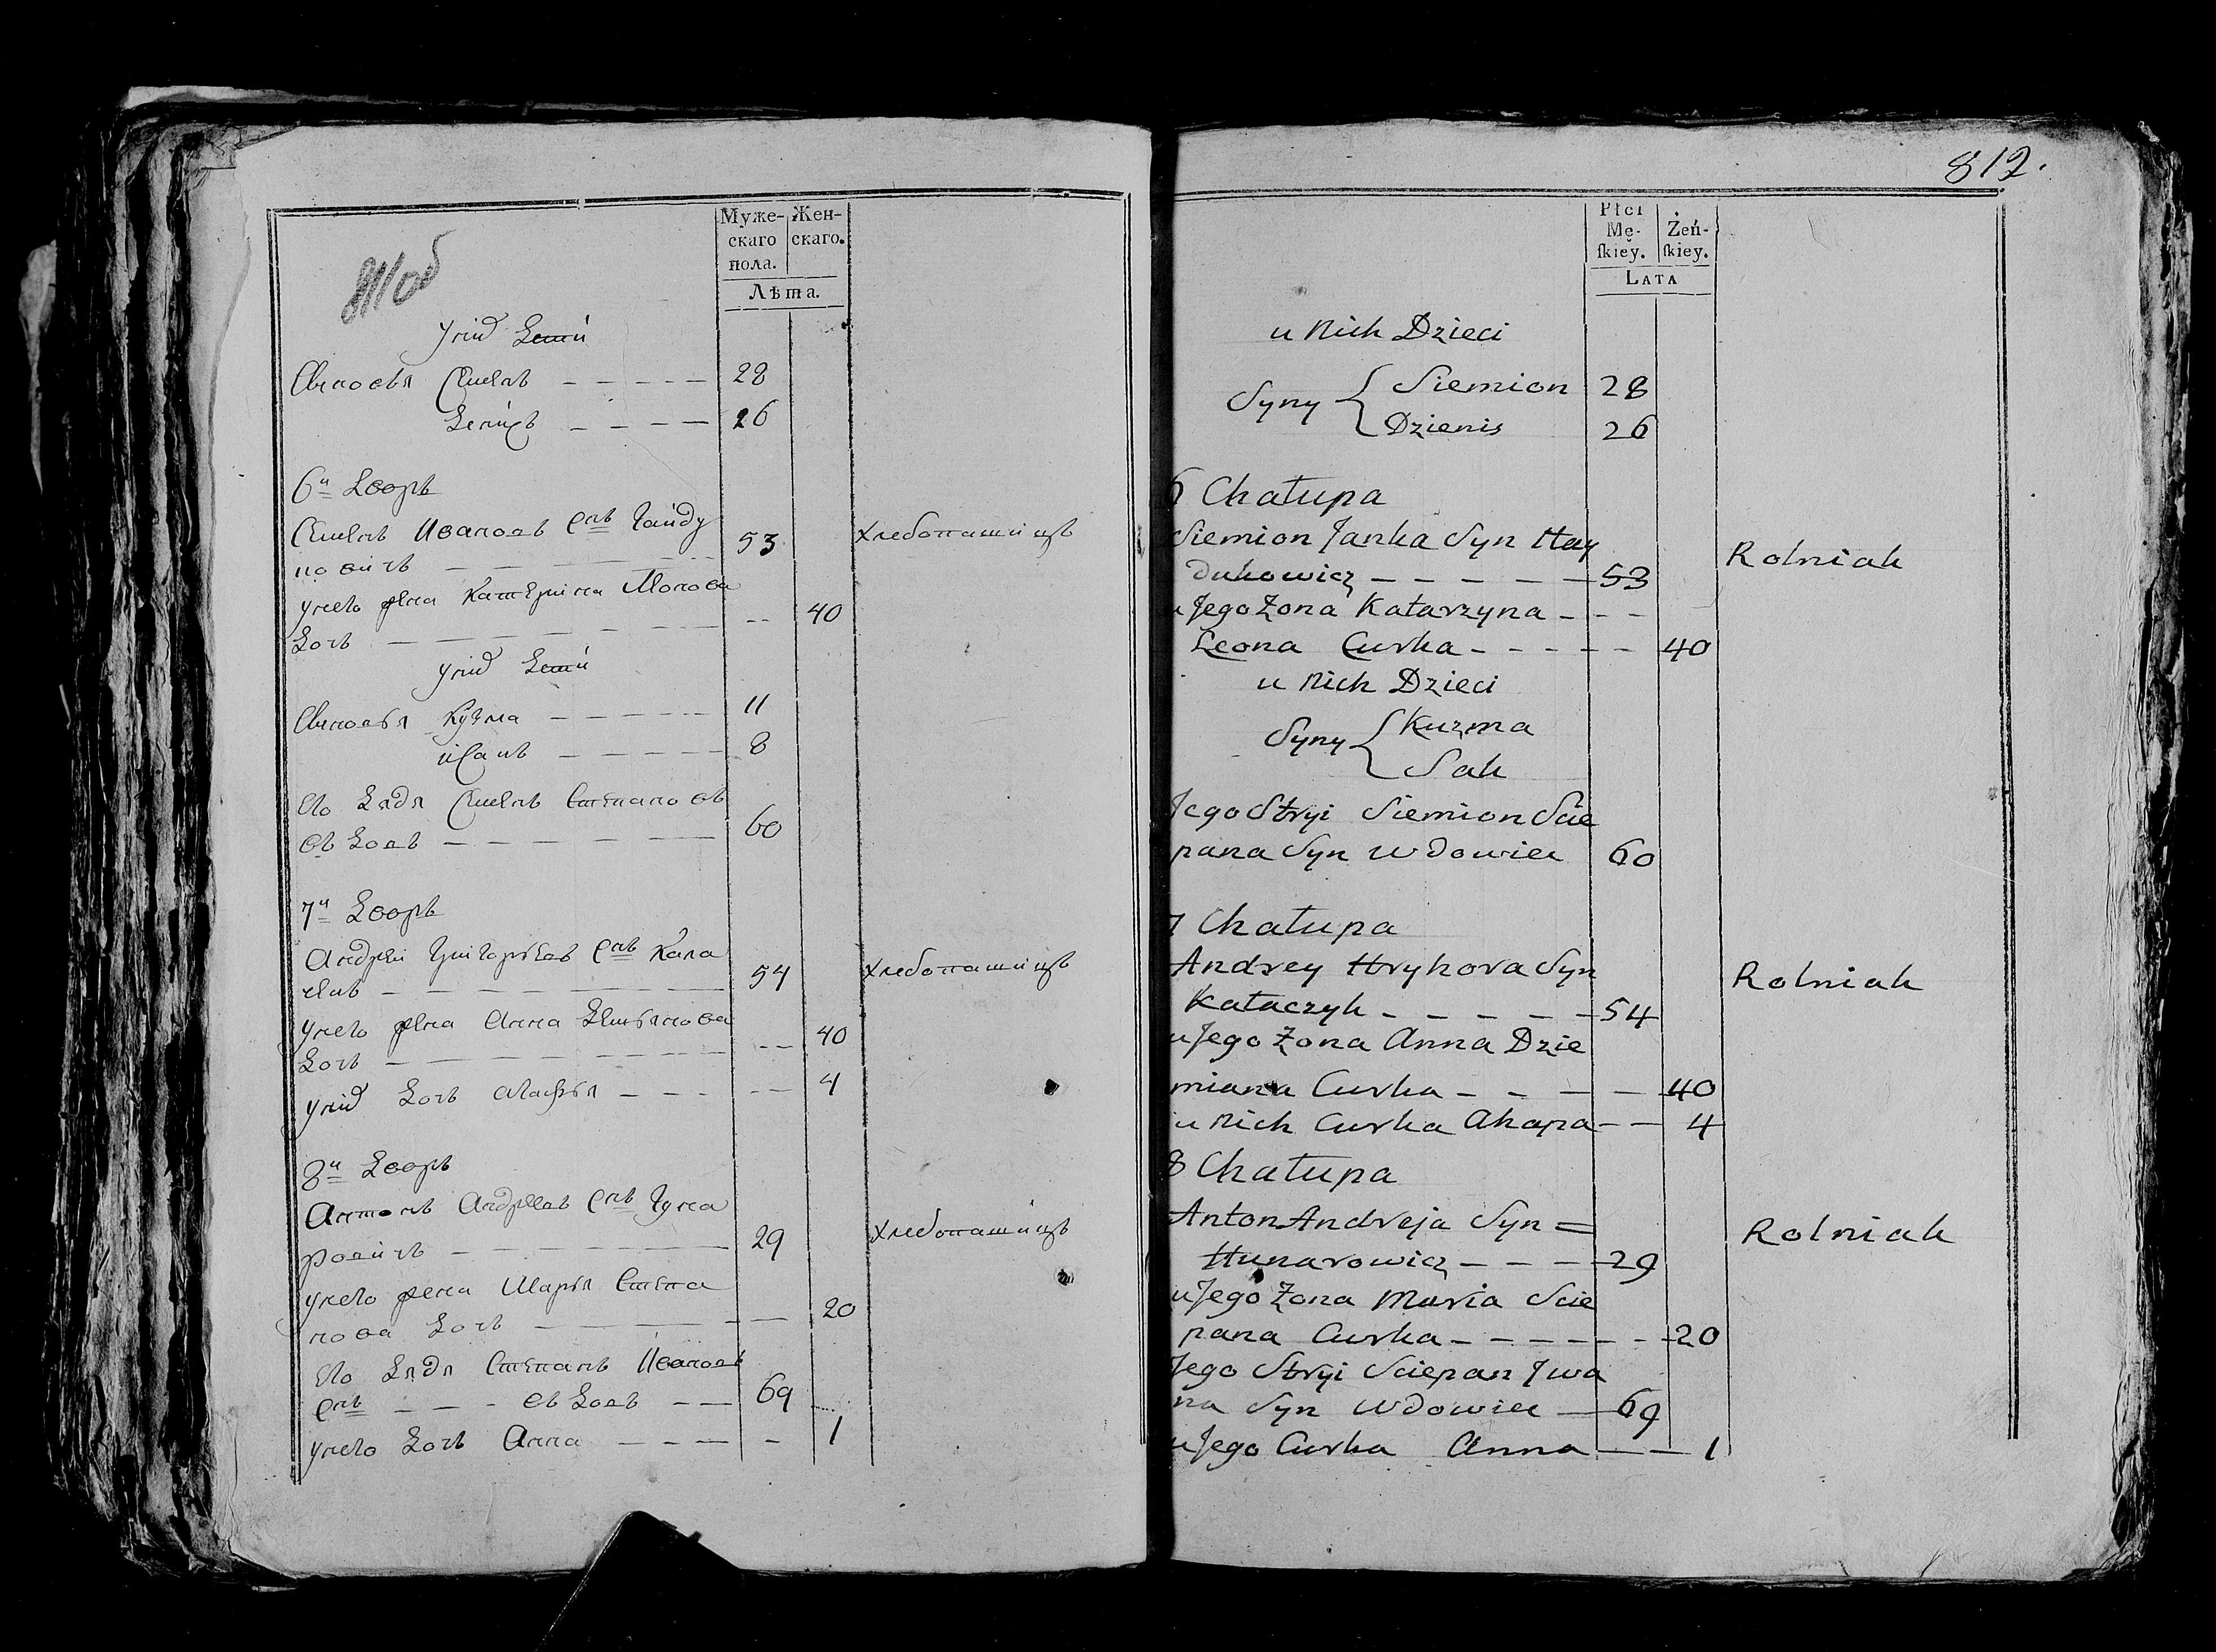 811об
Муже-
скаго
пола.
Жен-
скаго.
Лѣта.
уних Дети
Сыновья Семенъ — — — — — 28
Денисъ — — — — 26
6й Дворъ
Семенъ Ивановъ снъ Гайду
новичъ — — — 53 хлебопашицъ
унего жена Катерина
дочь — — — — — — — 40
уних Дети
Сыновья Кузма — — — — — 11
исакъ — — — — — 8
его дядя Семенъ Степановъ
вдовъ — — — — — — 60
7й Дворъ
Андрей Григорьевъ снъ Кала
— — — — — — — 54 хлебопашицъ
унего жена Анна Демьянова
дочь — — — — — — — 40
уних дочь Агафья — — — — — 4
8й Дворъ
Антонъ Андреевъ снъ Гуна
ровичъ — — — — — — 29 хлебопашицъ
унего жена Марья Степа
нова дочь — — — — — — 20
его дядя Степанъ Ивановъ
снъ — — — вдовъ — — 69
унего дочь Анна — — — — — 1
812.
Płci
Mę-
ſkiey.
Żeń-
ſkiey.
LATA
u Nich Dzieci
Syny { Siemion 28
Dzienis 26
6 Chałupa
Siemion Janka Syn Hay
dukowicz — — — — — 53 Rolnik
u Jego Zona Katarzyna — — —
Leona Curka — — — — — 40
u Nich Dzieci
Syny { Kuzma
Sak
Jego Stryi Siemion Scie
pana Syn Wdowiec 60
7 Chałupa
Andrey Hryhora Syn
Kałaczyk — — — — — 54 Rolnik
u Jego Zona Anna Dzie
miana Curka — — — — — 40
u Nich Curka Ahapa — — 4
8 Chałupa
Anton Andreja Syn =
Hunarowicz — — — — 29 Rolnik
u Jego Zona Maria Scie
pana Curka — — — — — — — 20
Jego Stryi Sciepan Jwa
na Syn Wdowiec — 69
u Jego Curka Anna — — 1